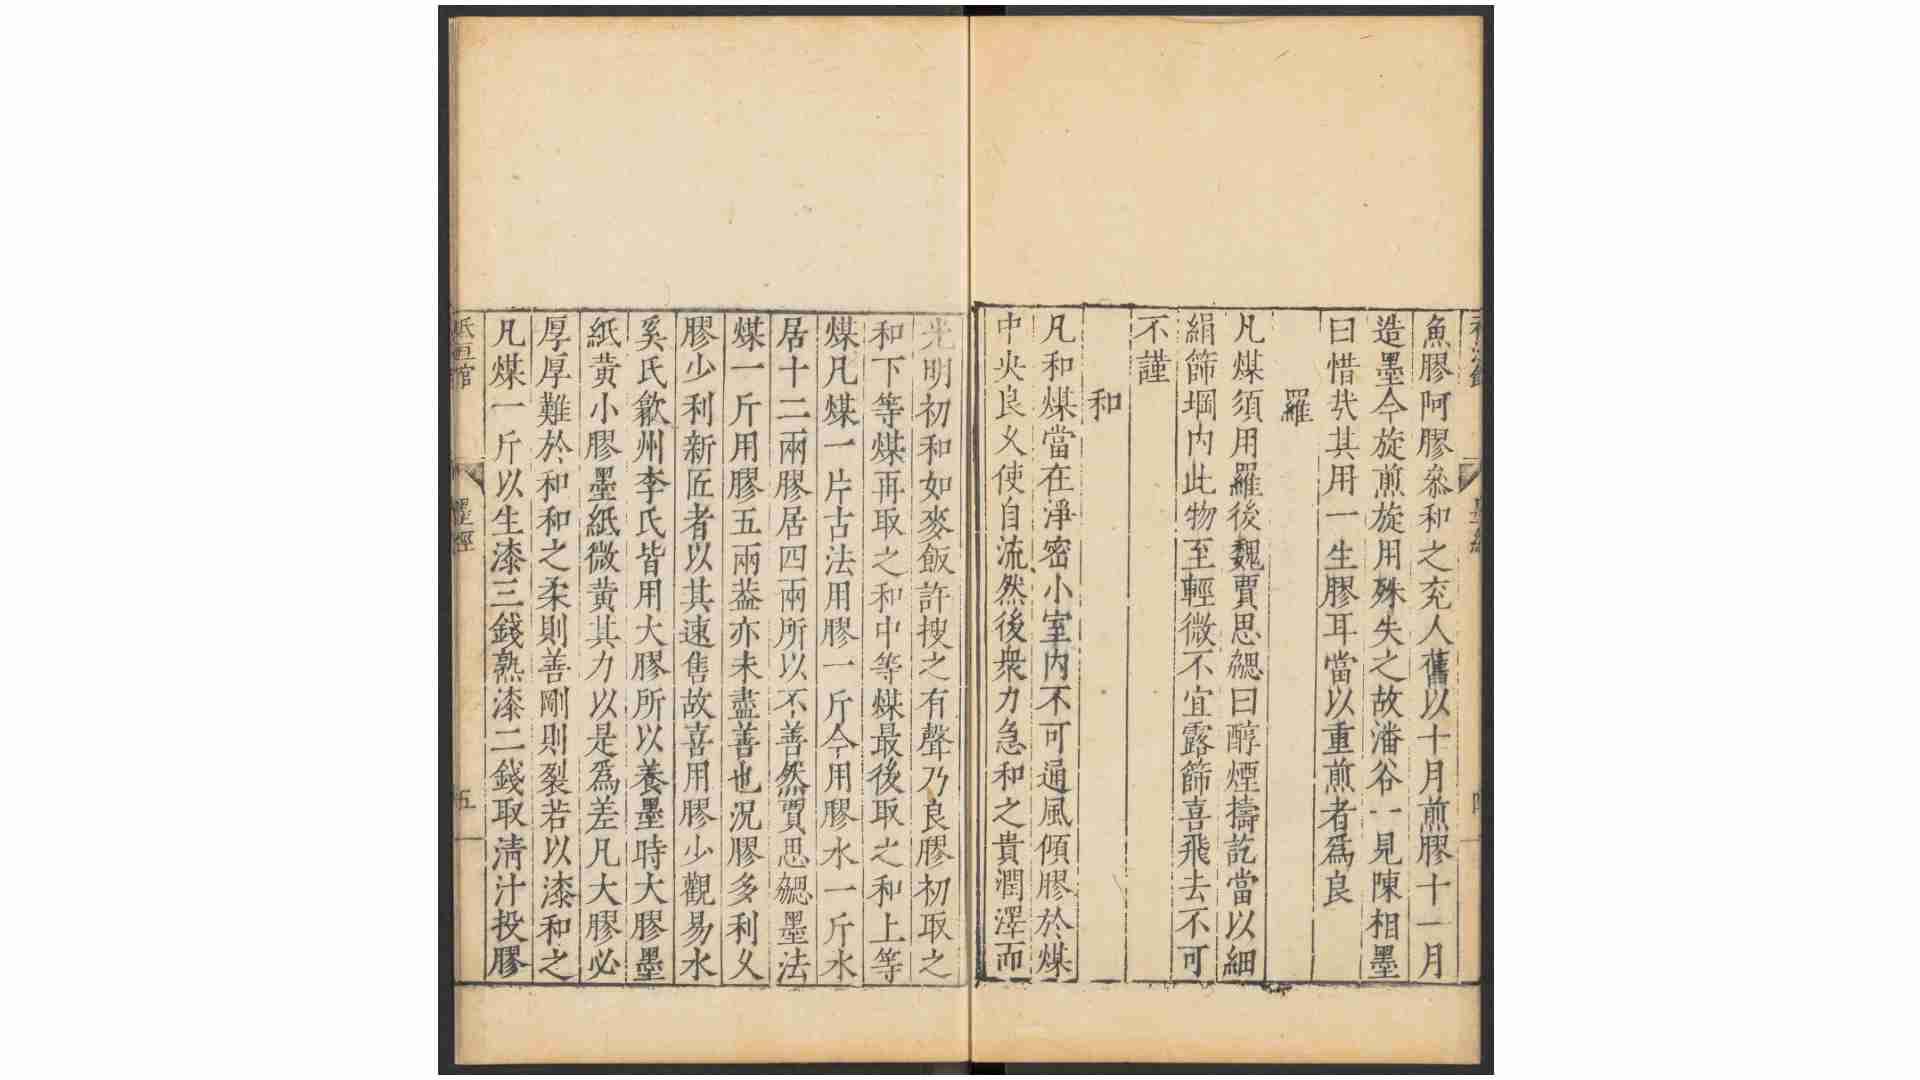 魚膠阿膠叅和之兖人舊以十月煎膠十一月
造墨今旋煎旋用殊失之故潘谷一見陳相墨
曰惜㢤其用一生膠耳當以重煎者爲良
羅
凡煤須用羅後魏賈思勰曰醇煙擣訖當以細
絹篩堈内此物至輕微不宜露篩喜飛去不可
不謹
和
凡和煤當在淨密小室内不可通風傾膠於煤
中央良乆使自流然後衆力急和之貴潤澤而
光明初和如麥飯許搜之有聲乃良膠初取之
和下等煤再取之和中等煤最後取之和上等
煤凡煤一片古法用膠一斤今用膠水一斤水
居十二兩膠居四兩所以不善然賈思勰墨法
煤一斤用膠五兩葢亦未盡善也況膠多利乆
膠少利新匠者以其速售故喜用膠少觀易水
奚氏歙州李氏皆用大膠所以養墨時大膠墨
紙黄小膠墨紙微黄其力以是爲差凡大膠必
厚厚難於和和之柔則善剛則裂若以漆和之
凡煤一斤以生漆三錢熟漆二錢取淸汁投膠
墨經
五